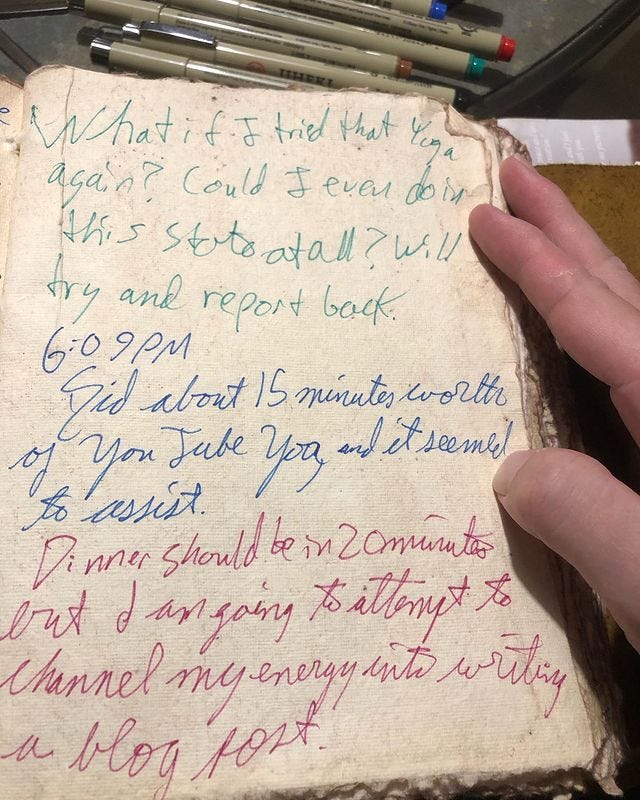 What if I tried that Yoga
again? Could I even do in
this state at all? Will
try and report back.
6:09PM
Did about 15 minutes worth
of You Tube Yoga, and it seemed
to assist.
Dinner should be in 20 minutes
but I am going to attempt to
channel my energy into writing
a blog post.